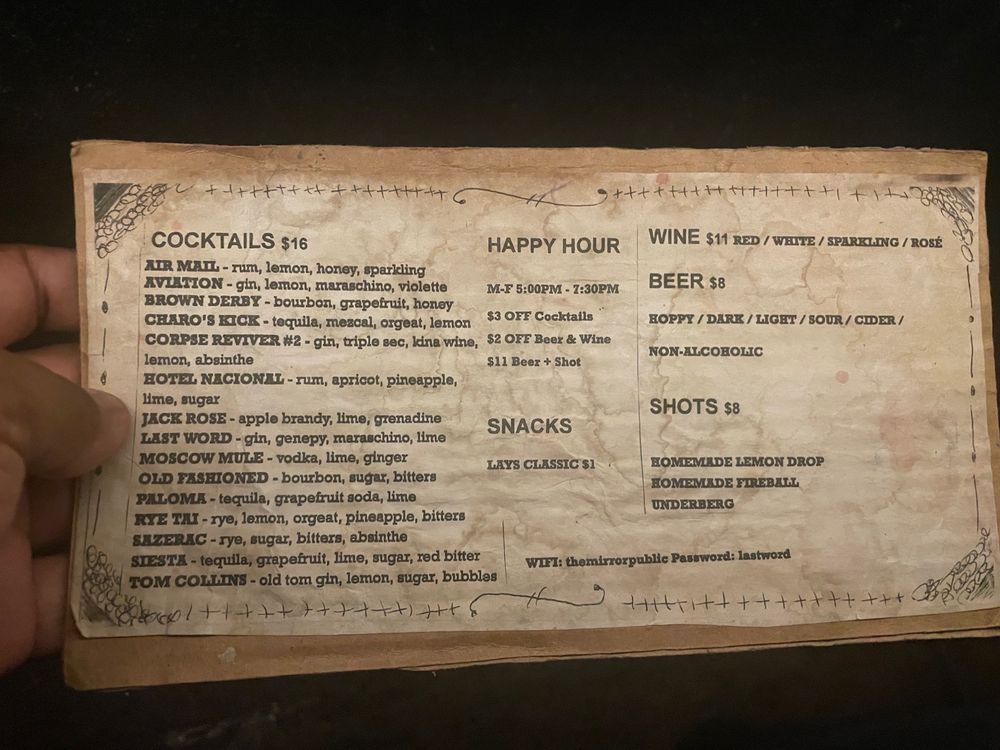 COCKTAILS $16
AIR MAIL - rum, lemon, honey, sparkling
AVIATION - gin, lemon, maraschino, violette
BROWN DERBY - bourbon, grapefruit, honey
CHARO'S KICK - tequila, mezcal, orgeat, lemon
CORPSE REVIVER #2 - gin, triple sec, kina wine,
lemon, absinthe
HOTEL NACIONAL - rum, apricot, pineapple,
lime, sugar
JACK ROSE - apple brandy, lime, grenadine
LAST WORD - gin, genepy, maraschino, lime
MOSCOW MULE - vodka, lime, ginger
OLD FASHIONED - bourbon, sugar, bitters
PALOMA - tequila, grapefruit soda, lime
RYE TAI - rye, lemon, orgeat, pineapple, bitters
SAZERAC - rye, sugar, bitters, absinthe
SIESTA - tequila, grapefruit, lime, sugar, red bitter
TOM COLLINS - old tom gin, lemon, sugar, bubbles
HAPPY HOUR
M-F 5:00PM - 7:30PM
$3 OFF Cocktails
$2 OFF Beer & Wine
$11 Beer + Shot
SNACKS
LAYS CLASSIC $1
WINE $11 RED / WHITE / SPARKLING / ROSÉ
BEER $8
HOPPY / DARK / LIGHT / SOUR / CIDER /
NON-ALCOHOLIC
SHOTS $8
HOMEMADE LEMON DROP
HOMEMADE FIREBALL
UNDERBERG
WIFI: themirrorpublic Password: lastword